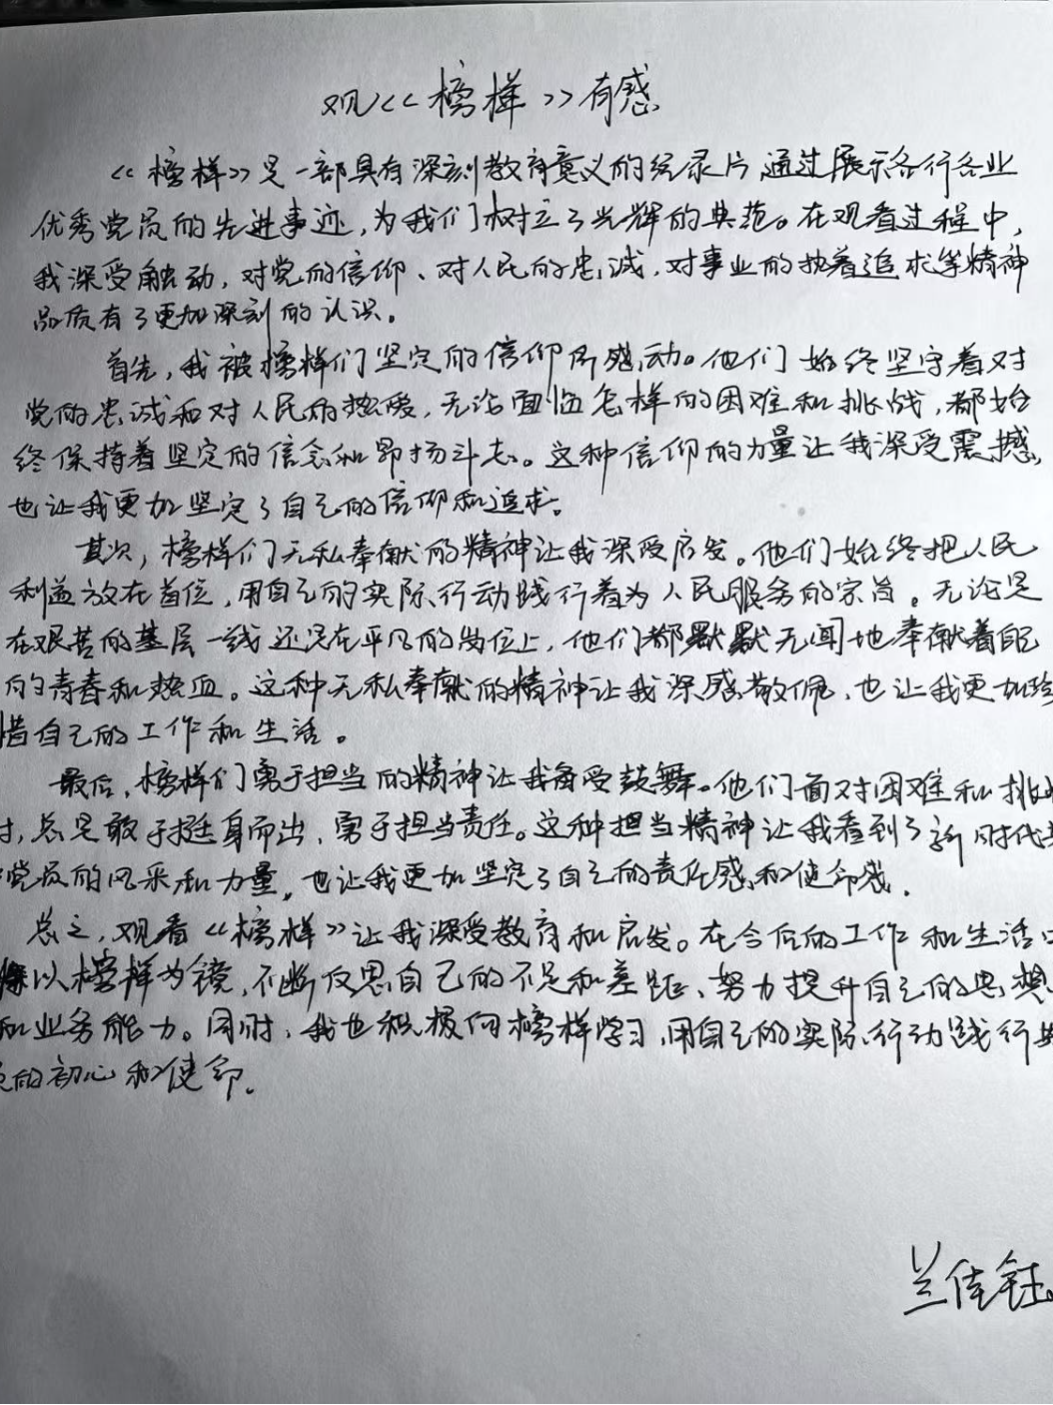 观《榜样》有感
《榜样》是一部具有深刻教育意义的纪录片,通过展示各行各业
优秀党员的先进事迹,为我们树立了光辉的典范。在观看过程中,
我深受触动,对党的信仰、对人民的忠诚,对事业的执着追求等精神
品质有了更加深刻的认识。
首先,我被榜样们坚定的信仰所感动。他们始终坚守着对
党的忠诚和对人民的热爱,无论面临怎样的困难和挑战,都始
终保持着坚定的信念和昂扬斗志。这种信仰的力量让我深受震撼,
也让我更加坚定了自己的信仰和追求。
其次,榜样们无私奉献的精神让我深受启发。他们始终把人民
利益放在首位,用自己的实际行动践行着为人民服务的宗旨。无论是
在艰苦的基层一线还是在平凡的岗位上,他们都默默无闻地奉献着自己
的青春和热血。这种无私奉献的精神让我深感敬佩,也让我更加珍
惜自己的工作和生活。
最后,榜样们勇于担当的精神让我备受鼓舞。他们面对困难和挑战
时,总是敢于挺身而出、勇于担当责任。这种担当精神让我看到了新时代
党员的风采和力量,也让我更加坚定了自己的责任感和使命感。
总之,观看《榜样》让我深受教育和启发。在今后的工作和生活
以榜样为镜,不断反思自己的不足和差距、努力提升自己的思想
和业务能力。同时,我也积极向榜样学习,用自己的实际行动践行
的初心和使命。
兰佳钰